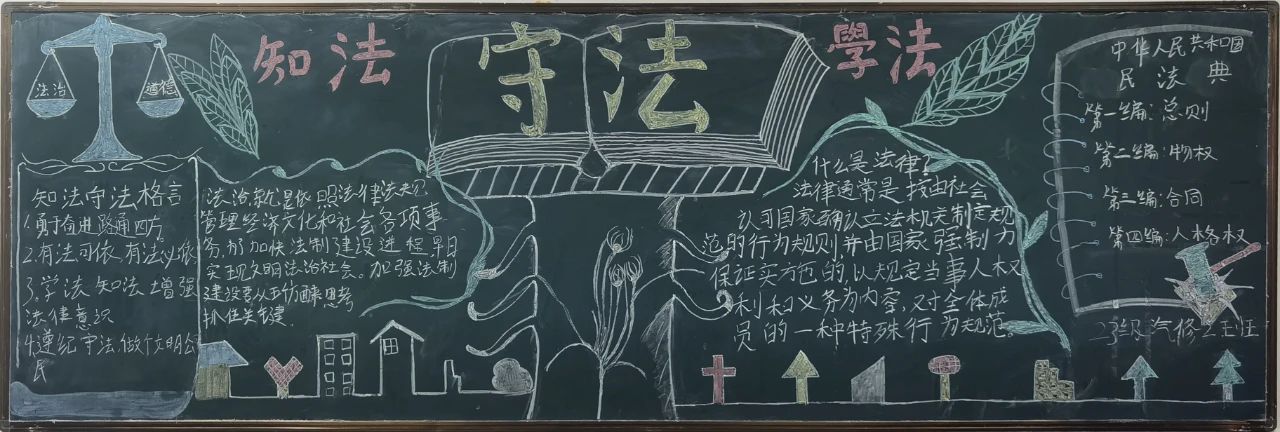 知法
守法
學法
法治
道德
知法守法格言
1.勇于奋进 路通四方
2.有法可依 有法必依
3.学法 知法 增强
法律意识
4.遵纪守法,做个文明公
民
法治就是依照法律法规
管理经济文化和社会各项事
务,加快法制建设进程,早日
实现文明法治社会。加强法制
建设要从
思考
抓住关键
什么是法律?
法律通常是 指由社会
认可国家确认立法机关制定规
范的行为规则,并由国家强制力
保证实方也的,以规定当事人权
利和义务为内容,对全体成
员的一种特殊行为规范。
中华人民共和国
民法典
第一编:总则
第二编:物权
第三编:合同
第四编:人格权
23级汽修